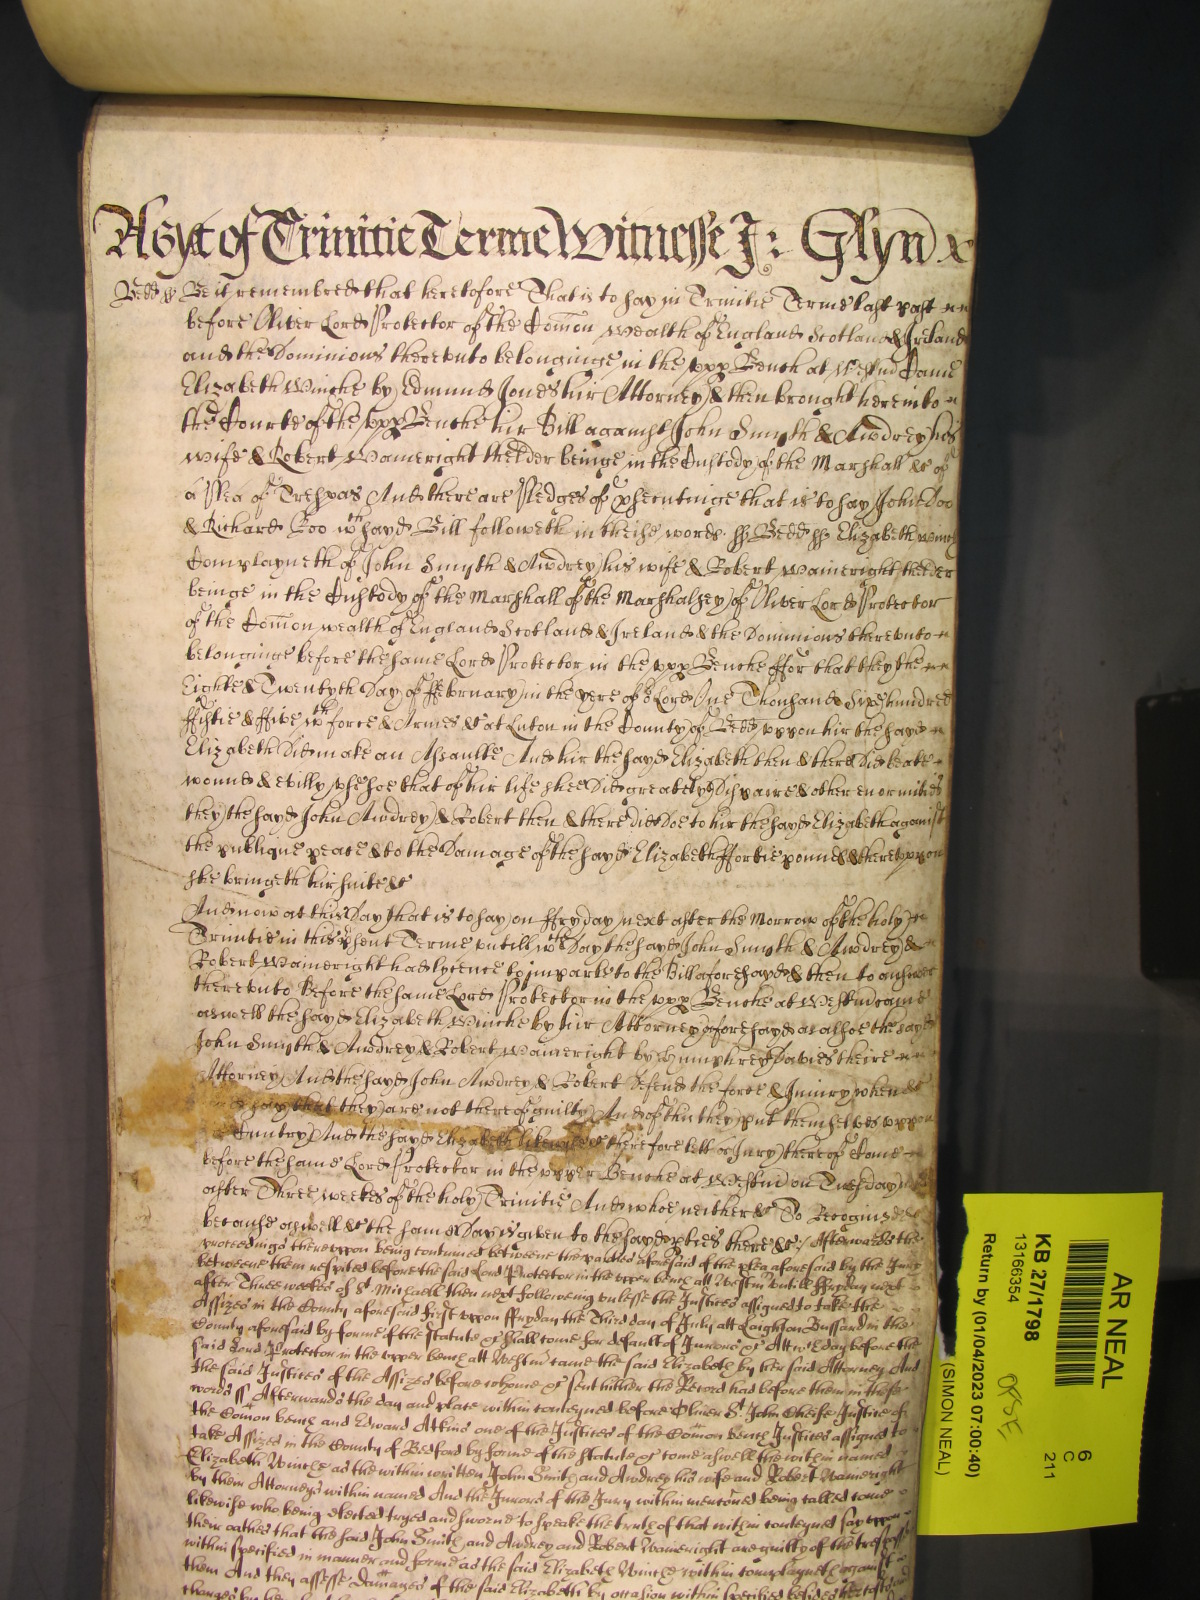 As yet of Trinitie Terme Witnesse J: Glynd
Bedd ss Be it remembred that heretofore That is to say in Trinitie Terme last past
before Oliver Lord Protector of the Comon wealth of England Scotland & Ireland
and the Dominions thereunto belonginge in the upp Bench at Westm Came
Elizabeth Winche by Edmund Jones hir Attorney & then brought here into
the Courte of the upp Benche hir Bill against John Smyth & Awdrey his
wife & Robert Wameright thelder beinge in the Custody of the Marshall &c of
a Plea of Trespas And there are Pledges of psecutinge that is to say John Doo
& Richard Roo wch sayd Bill followeth in theise words ss Bedd ss Elizabeth Winch
Complayneth of John Smyth & Awdrey his wife & Robert Wameright thelder
beinge in the Custody of the Marshall of the Marshalsey of Oliver Lord Protector
of the Comon wealth of England Scotland & Ireland & the Dominions thereunto
belonginge before the same Lord Protector in the upp Benche ffor that they the
Eighte & Twentyth Day of ffebruary in the yere of or Lord One Thousand Six hundred
ffiftie & ffive wth force & Armes & at Luton in the County of Bedd uppon hir the sayd
Elizabeth did make an Assaulte And hir the sayd Elizabeth then & there did beate
wound & evilly soe that of hir life shee did greately dispaire & other enormities
they the sayd John Awdrey & Robert then & there did doe to hir the sayd Elizabeth against
the publique peace & to the Damage of the sayd Elizabeth ffortie pound & thereuppon
she bringeth hir suite &c
And now at this Day that is to say on ffryday next after the Morrow of the holy
Trinitie in this psent Terme untill wch Day the sayd John Smyth & Awdrey &
Robert Wameright had lycence to imparle to the Bill aforesayd & then to answer
thereunto Before the same Lord Protector in the upp Benche at Westm came
aswell the sayd Elizabeth Winche by hir Attorney aforesayd as alsoe the sayd
John Smyth & Awdrey & Robert Wameright by Humphrey Davies theire
Attorney And the sayd John Awdrey & Robert Defend the force & Iniury when &c
say that they are not thereof guilty And of this they put themselves uppon
Cuntry And the sayd Elizabeth likewise &c therefore lett a Jury thereof Come
before the same Lord Protector in the upper Benche at Westm on Tuesday
after Three weekes of the holy Trinitie And whoe neither &c To Recognize &c
because aswell &c the same Day is given to the sayd pties there &c :/ Afterwards the
proceedings thereuppon being continued betweene the parties aforesaid of the plea aforesaid by the Jury
betweene them respited before the said Lord Protector in the upper bench att Westm untill ffryday next
after Three weekes of St Michaell then next followeing unlesse the Justices assigned to take the
Assizes in the County aforesaid first uppon ffryday the Third day of July att Leighton Bussard in the
County aforesaid by forme of the Statute &c shall come for default of Jurors &c Att wch day before the
said Lord Protector in the upper bench att Westm came the said Elizabeth by her said Attorney And
the said Justices of the Assizes before whome &c sent hither the Record had before them in these
words ss Afterwards the day and place within conteyned before Oliver St John Cheife Justice of
the Comon bench and Edward Atkins one of the Justices of the Comon bench Justices assigned to
take Assizes in the County of Bedford by forme of the Statute &c come aswell the within named
Elizabeth Winch as the within written John Smith and Awdrey his wife and Robert Wameright
by them Attorneys within named And the Jurors of the Jury within mentioned being called come
likewise who being elected tryed and sworne to speake the truth of that within conteyned say uppon
their oathes that the said John Smith and Awdrey and Robert Wameright are guilty of the trespass
within specified in manner and forme as the said Elizabeth Winch within complayneth against
them And they assesse damages of the said Elizabeth by occasion within specified besides her costs
charges by her
AR NEAL
6
C
211
KB 27/1798
13166354
Return by (01/04/2023 07:00:40)
(SIMON NEAL)